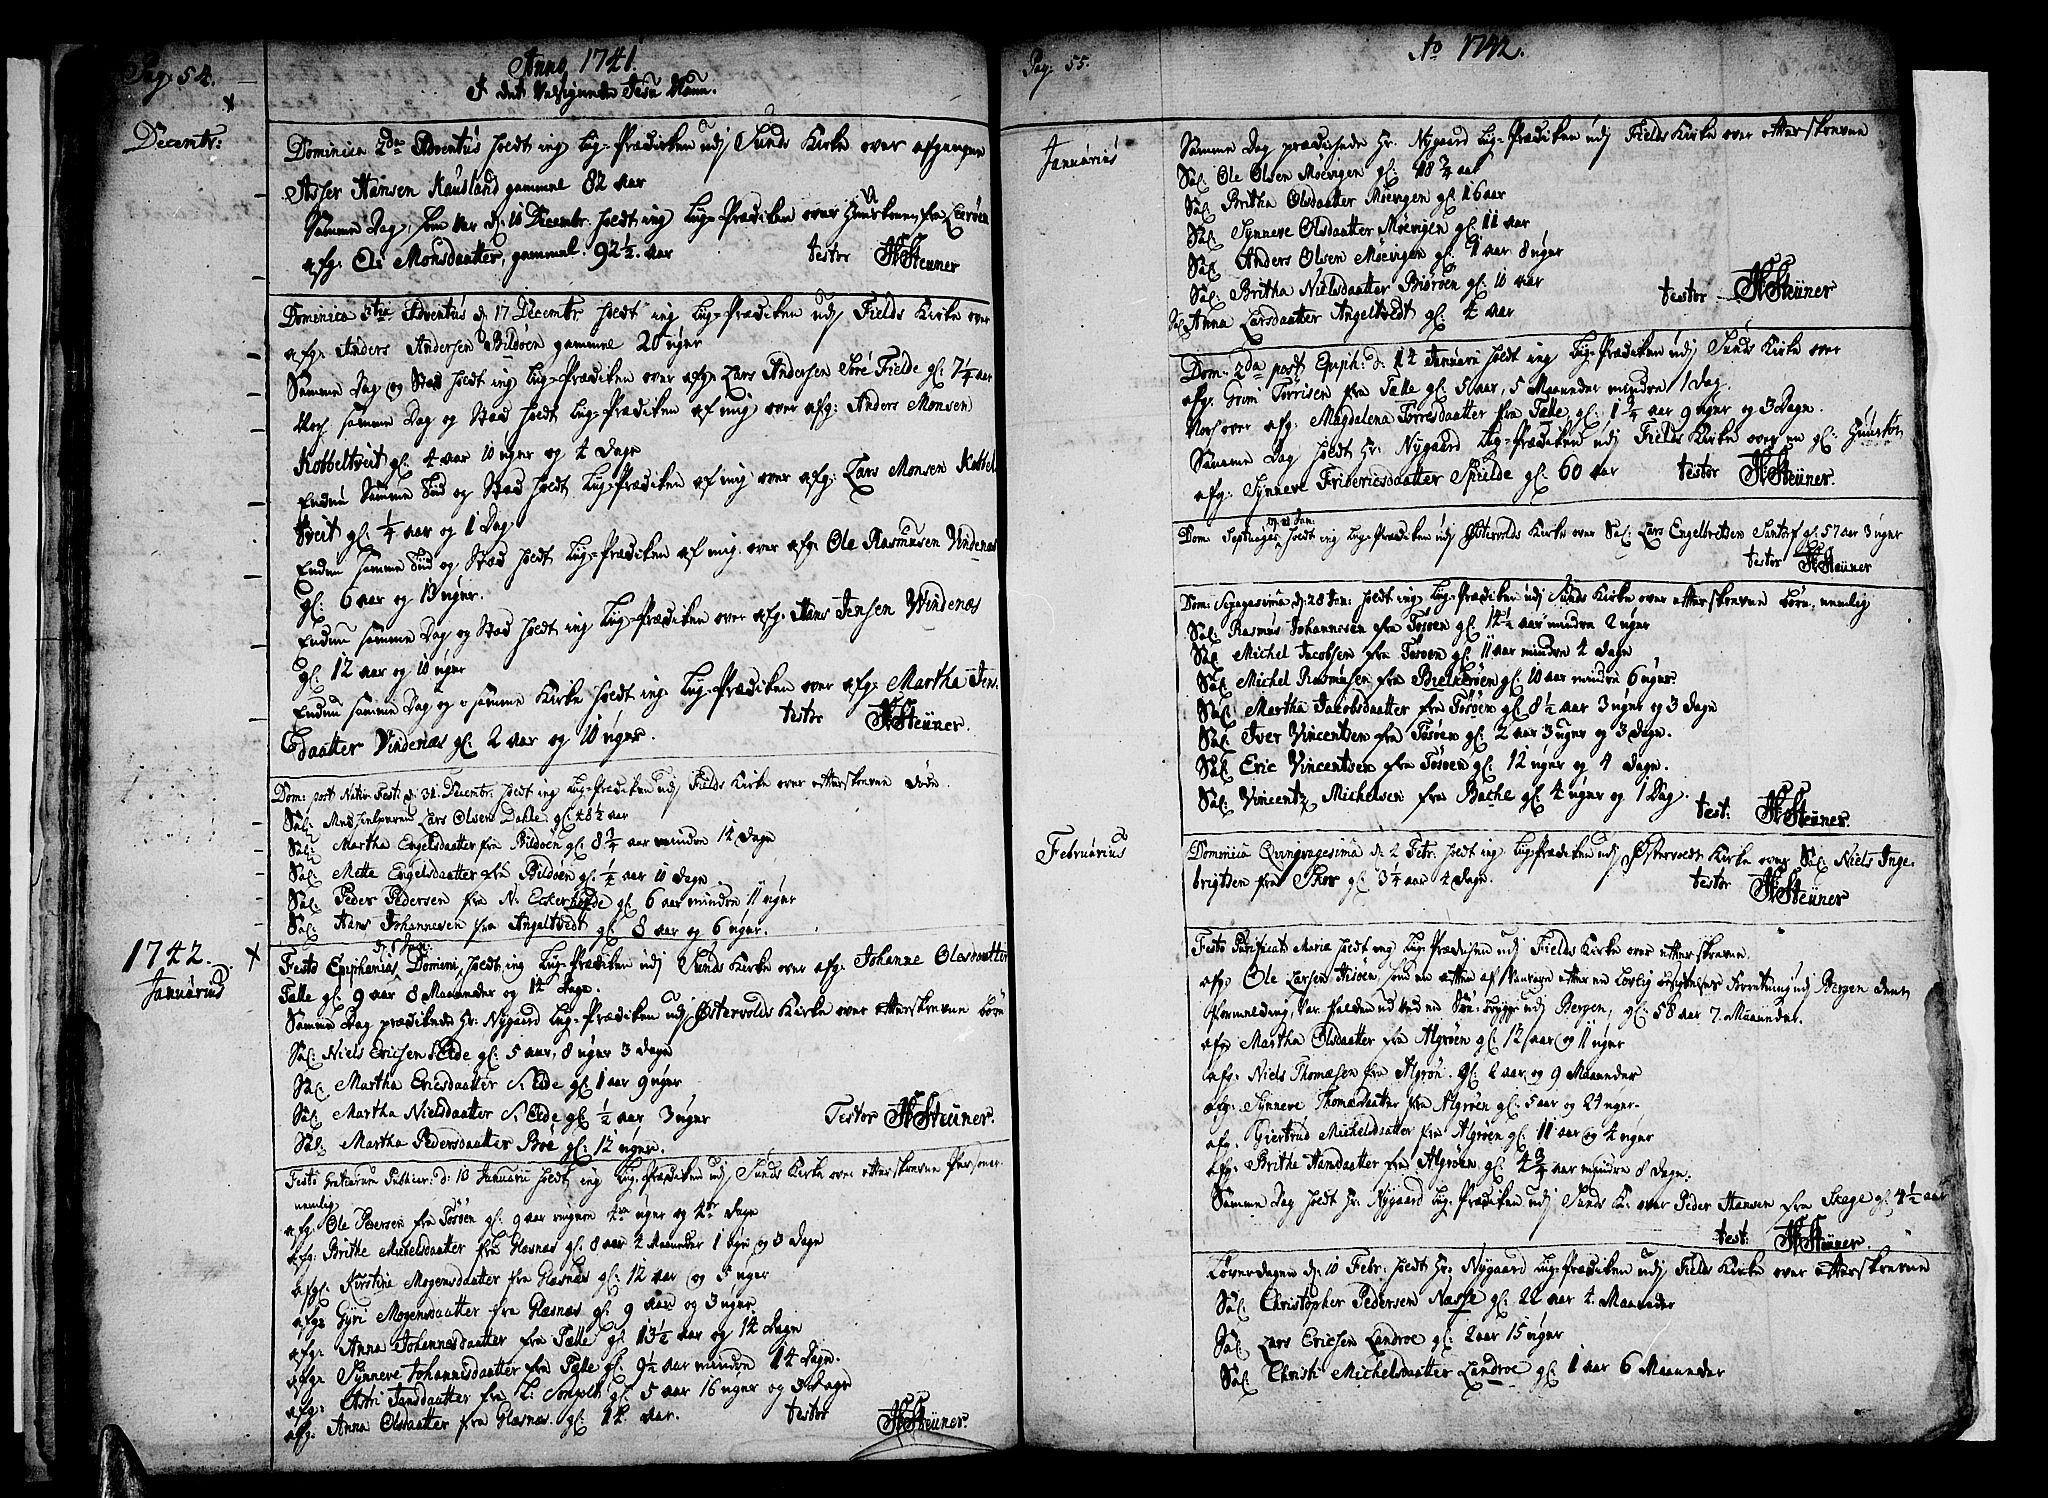 Pag: 54.
Anno 1741.
I det Velsignede Jesu Nafn.
Decembr:
Dominica 2da Adventus holdt ieg Liig-Prædicken udj Sunds Kirke over afgangne
Asser Hansen Kausland gammel 82 aar
Samme Dag, som var d: 10 Decembr. holdt ieg Liig-Prædicken over Huuskonen fra Lerøen
afg: Oli Monsdaatter, gammel. 92½. aar testor HSteuner
Domenica 3tia Adventus d: 17 Decembr holdt ieg Liig-Prædicken udj Fields Kirke over
afg: Anders Andersen Bildøen gammel 20 uger
Samme Dag og Sted holdt ieg Liig-Prædicken over afg: Lars Andersen Søre Fielde gl: 7¼ aar
Noch samme Dag og Sted holdt Liig-Prædicken af mig over afg: Anders Monsen
Kobbeltveit gl: 4 aar 10 uger og 4 Dage
Endnu Samme Tiid og Sted holdt Liig-Prædicken af mig over afg: Lars Monsen Kobbel
tveit gl: ¼ aar og 1 Dag
Endnu samme Tiid og Sted holdt Liig-Prædicken af mig over afg: Ole Rasmusen Vindenæs
gl: 6 aar og 13 uger.
Endnu samme Dag og Sted holdt ieg Liig-Prædicken over afg: Hans Jensen Windenæs
gl: 12 aar og 10 uger
Endnu samme Dag og i samme Kirke holdt ieg Liig-Prædicken over afg: Martha Jens
daatter Vindenæs gl: 2 aar og 10 uger. testor HSteuner.
Dom: post Nativ: Festi d: 31. Decembr: holdt ieg Liig-Prædicken udj Fields Kirke over efterskrevne Døde
Sal: Medhielperen Lars Olsen Dahle gl: 48½ aar
Sal: Martha Engelsdaatter fra Bildøen gl: 8¾ aar mindre 14 Dage
Sal: Mette Engelsdaatter fra Bildøen gl: ¼ aar 10 Dage
Sal: Peder Pedersen fra N: Eckerhovde gl: 6 aar mindre 11 uger
Sal: Hans Johannesen fra Angeltvedt gl: 8 aar og 6 uger.
1742.
Januarius
Festo Epiphanias d: 6 Jan: Domini holdt ieg Liig-Prædicken udj Sunds Kirke over afg: Johanne Olesdaatter
Tælle gl: 9 aar 8 Maaneder og 14 Dage.
Samme Dag prædickede Hr: Nygaard Liig-Prædicken udj Østervolds Kirke over efterskrevne børn
Sal: Niels Ericsen S: Eide gl: 5 aar, 8 uger 3 Dage
Sal: Martha Ericsdaatter S: Eide gl: 1 aar 9 uger
Sal: Martha Nielsdaatter S: Eide gl: ½ aar 3 uger Testor HSteuner.
Sal: Martha Pedersdaatter Boe gl: 12 uger.
d: 10 Januarii holdt ieg Liig-Prædicken udj Sunds Kirke over efterskrevne Personer
nemlig
afg: Ole Petersen fra Tosøen gl: 9 aar ringere 4re uger og 4re Dage
afg: Brithe Michelsdaatter fra Glæsnæs gl: 8 aar 2 Maaneder 1 uge og 3 Dage
afg: Kirstine Mogensdaatter fra Glæsnæs gl: 12 aar og 5 uger
afg: Gyri Mogensdaatter fra Glæsnæs gl: 9 aar og 3 uger
afg: Anna Johannesdaatter fra Tælle gl: 13½ aar og 14 Dage
afg: Synneve Johannisdaatter fra Tælle gl: 9½ aar mindre 14 Dage.
afg: Astri Jansdaatter fra gl: 5 aar 16 uger og 3 Dage
afg: Anna Olsdaatter fra Glæsnæs gl: 12 aar. testor HSteuner.
Pag: 55.
Ao 1742.
Januarius
Samme Dag prædickede Hr. Nygaard Liig-Prædicken udj Fields Kirke over efterskrevne
Sal: Ole Olsen Møevigen gl: 18¾ aar
Sal: Britha Olsdaatter Møevigen gl: 16 aar
Sal: Synneve Olsdaatter Møevigen gl: 11 aar
Sal: Anders Olsen Møevigen gl: 9 aar 8 uger
Sal: Britha Nielsdaatter Biørøen gl: 10 aar testor HSteuner
Sal: Anna Larsdaatter Angeltvedt gl: 4 aar
Dom: 2da post Epiph: d: 14 Januarii holdt ieg Liig-Prædicken udj Sunds Kirke over
afg: Grim Torrisen fra Tælle gl: 5 aar, 5 Maaneder mindre 1 Dag.
Noch over afg: Magdalena Torresdaatter fra Tælle, gl: 1¾ aar 9 uger og 3 Dage.
Samme Dag holdt Hr: Nygaard Liig-Prædicken udj Fields Kirke over en gl:
afg: Synneve Fridericsdaatter Spielde gl: 60 aar testor HSteuner.
Dom: Septuages: holdt ieg Liig-Prædicken udj Østervolds Kirke over Sal: Lars Engelbretsen Santorf gl: 57 aar 3 uger
testor HSteuner
Dom: Sexagesima d: 28 Jan: holdt ieg Liig-Prædicken udj Sunds Kirke over efterskrevne børn, nemlig
Sal: Rasmus Johannesen fra Tosøen gl: 14½ aar mindre 2 uger
Sal: Michel Jacobsen fra Tosøen gl: 11 aar mindre 4 Dage
Sal: Michel Rasmusen fra Bielkerøen gl: 10 aar mindre 6 uger.
Sal: Martha Jacobsdaatter fra Tosøen gl: 8½ aar 3 uger og 3 Dage
Sal: Iver Vincentsen fra Tosøen gl: 2 aar 3 uger og 3 Dage.
Sal: Eric Vincentsen fra Tosøen gl: 12 uger og 4 Dage.
Sal: Vincentz Michelsen fra Bache gl: 4 uger og 1 Dag. test: HSteuner.
Februarius
Domenica Qvinqvagesima d: 2 Febr. holdt ieg Liig-Prædicken udj Østervoldt Kirke over Sal: Niels Inge-
brigtsen fra Skor gl: 3¼ aar 4 Dage. testor HSteuner
Festo Purificat: Mariæ holdt ieg Liig-Prædicken udj Fields Kirke over efterskrevne.
afg: Ole Larsen
Formelding, var falden ud ved en Søe-brygge udj Bergen, gl: 58 aar 7. Maaneder.
afg: Martha Olsdaatter fra Algrøen gl: 12 aar og 11 uger
afg: Niels Thomæsen fra Algrøn. gl: 2 aar og 9 Maaneder
afg: Synneve Thomædaatter fra Algrøen gl: 5 aar og 24 uger.
afg: Giertrud Michelsdaatter fra Algrøen gl: 11 aar og 4 uger
afg: Brithe Hansdaatter fra Algrøen gl: 4¾ aar mindre 8 Dage.
Samme Dag holdt Hr: Nygaard Liig-Prædicken udj Sunds K: over Peder Hansen fra Skage gl: 4½ aar
test: HSteuner
Løverdagen d: 10 Febr: holdt Hr: Nygaard Liig-Prædicken udj Fields Kirke over efterskrevne
Sal: Christopher Pedersen Næsse gl: 22 aar 4. Maaneder
Sal: Lars Ericsen Landroe gl: 2 aar 15 uger
Sal: Christi Michelsdaatter Landroe gl: 1 aar 6 Maaneder